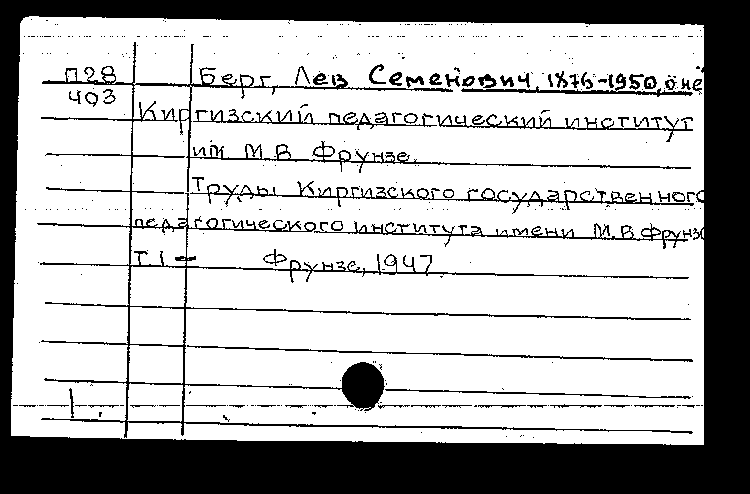 П28 Берг, Лев Семенович, 1876-1950, о нё
403
Киргизский педагогический институт
им. М.В. Фрунзе.
Труды Киргизского государственного
педагогического института имени М.В.Фрунзе
Т.1 – Фрунзе, 1947.
1.